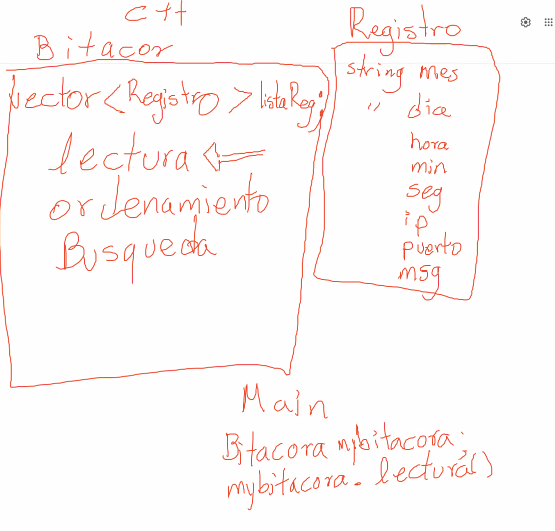 C++
Bitacor
vector<Registro> listaReg;
lectura <==
ordenamiento
Busqueda
Registro
string mes
" dia
hora
min
seg
ip
puerto
msg
Main
Bitacora mybitacora.
mybitacora. lectura()